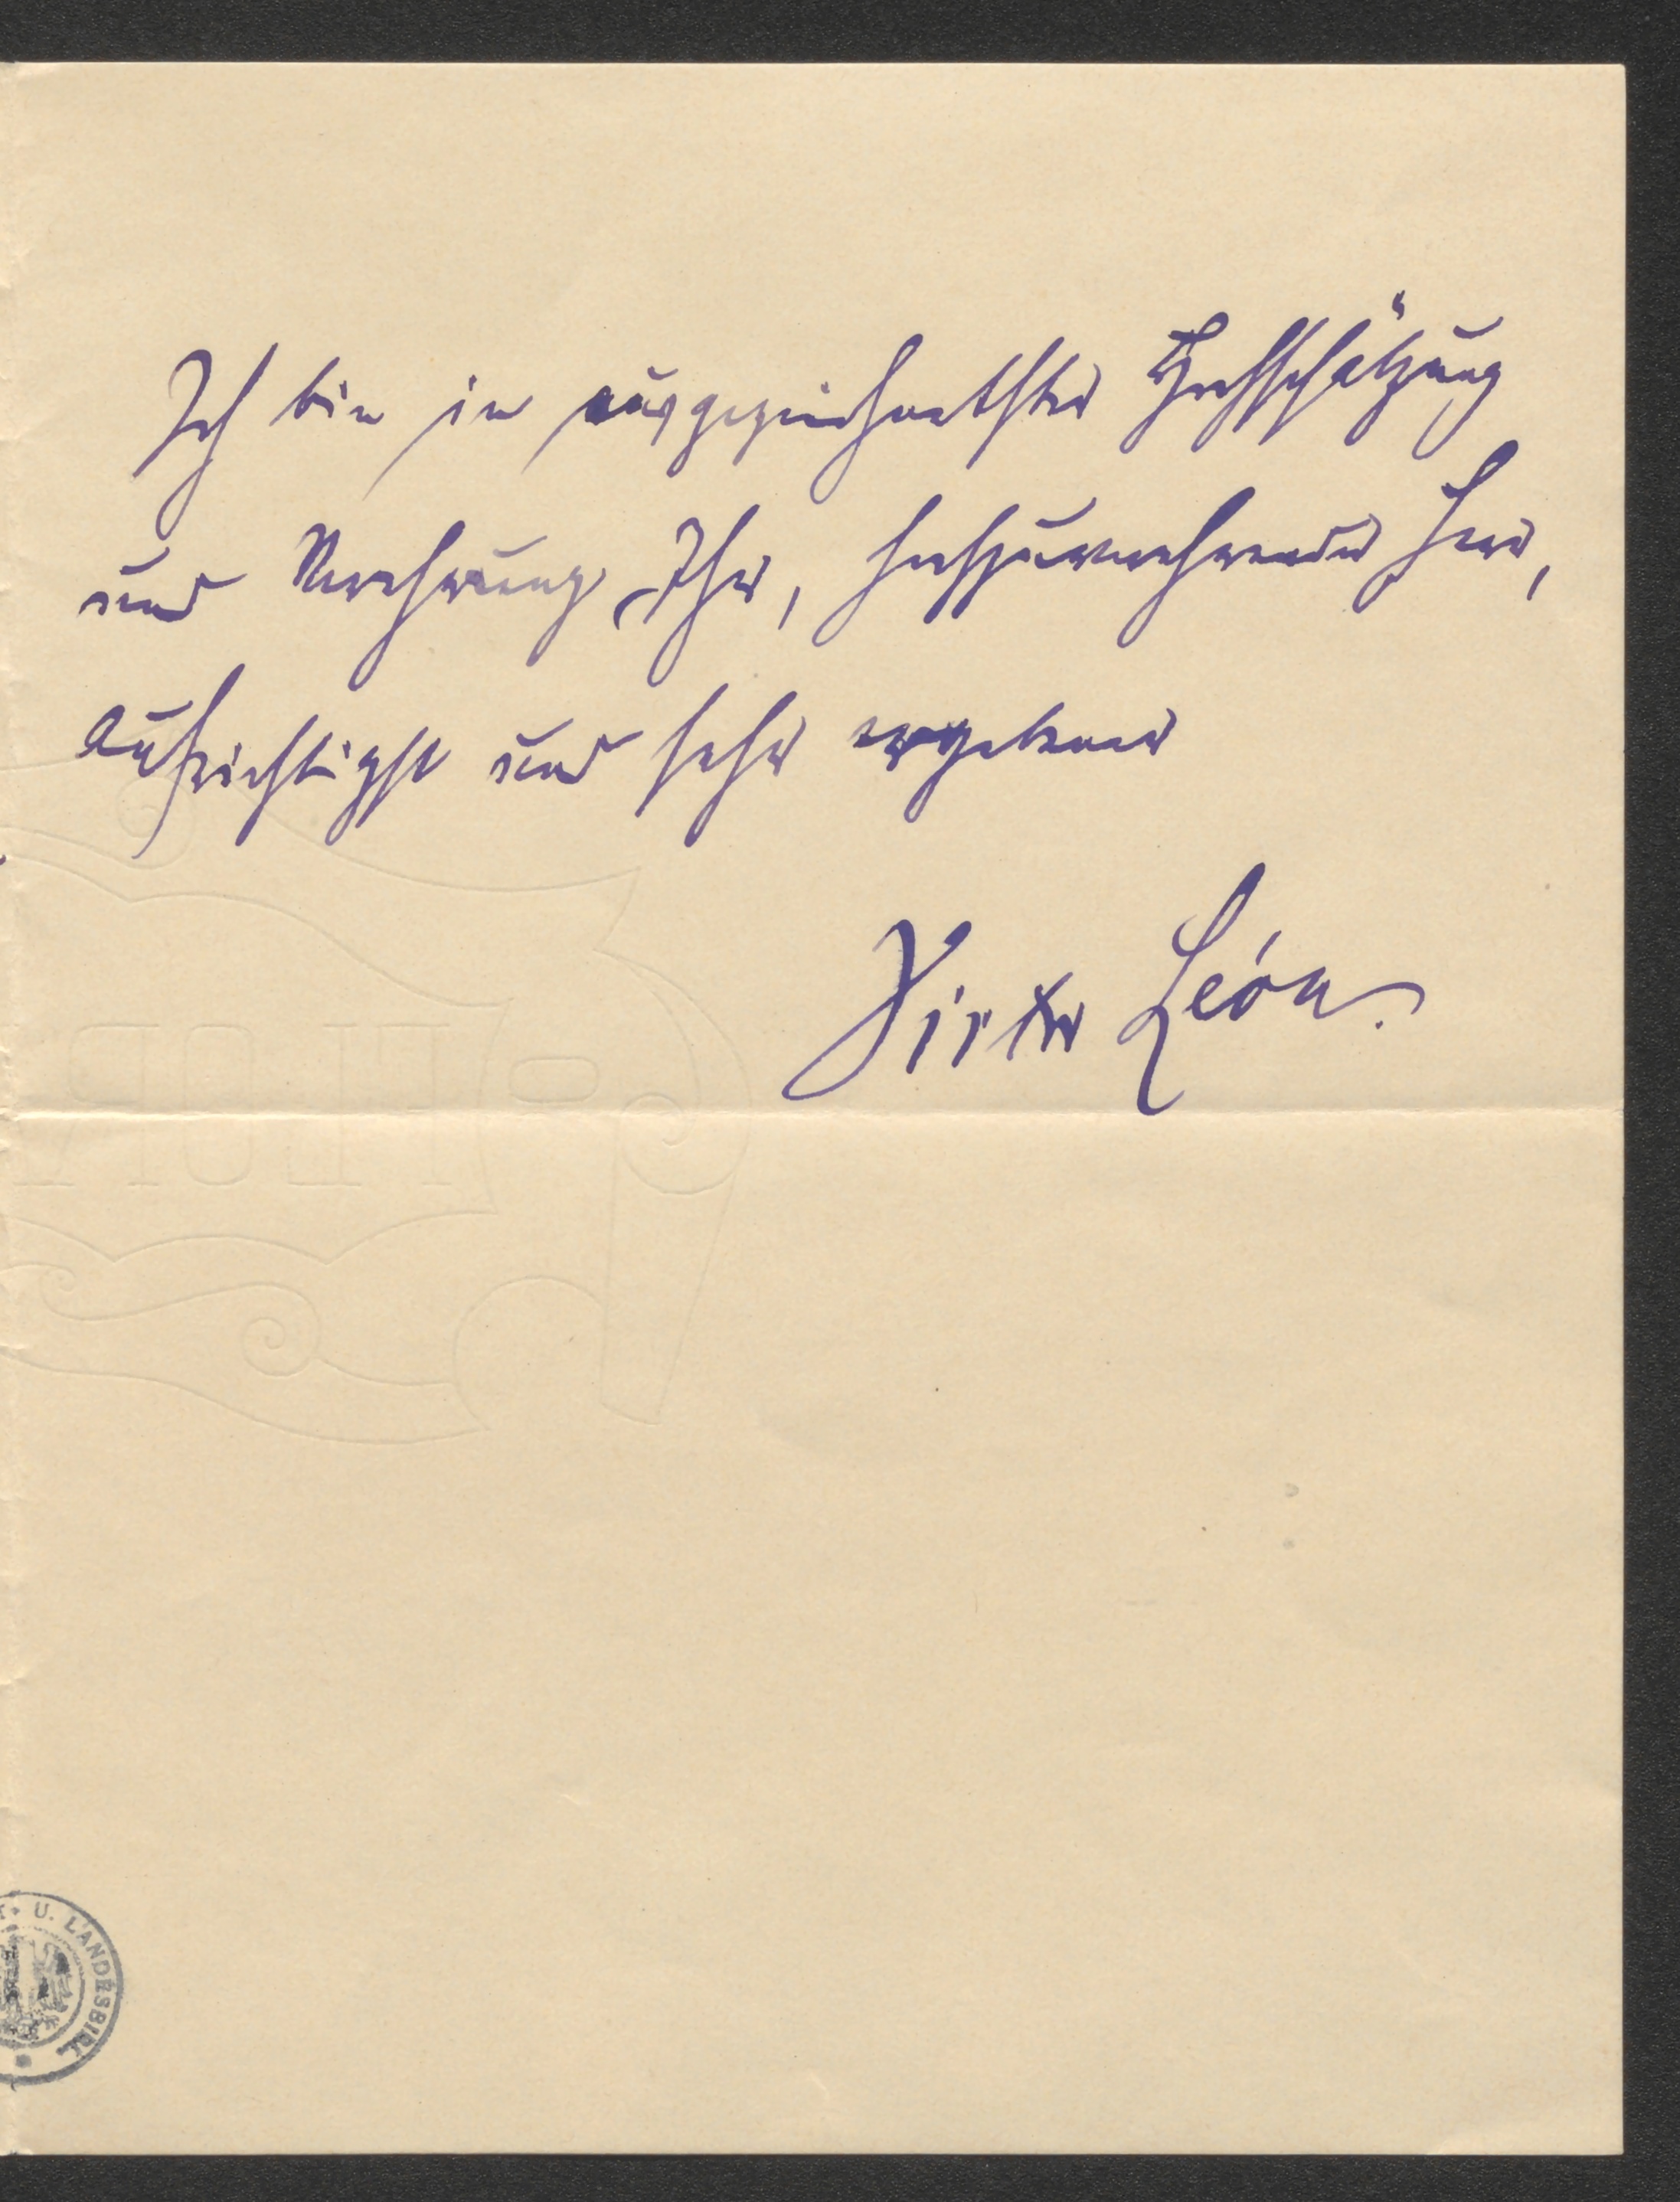 Ich bin in ausgezeichnetster Hochschätzung
und Verehrung Ihr, hochzuverehrender Herr,
aufrichtigst und sehr ergebener
Victor León.
U. LANDESBIBL